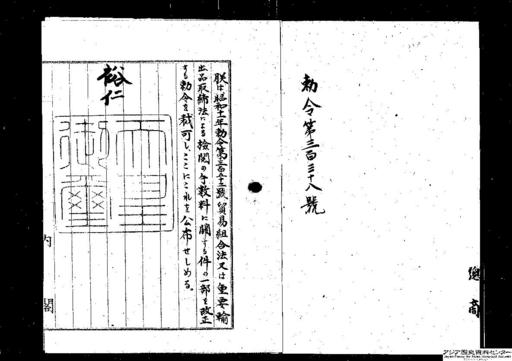 勅令第三百三十八號
總 商
朕は昭和十一年勅令第三百十三號貿易組合法又は重要輸
出品取締法による檢閲の手數料に關する件の一部を改正
する勅令を裁可し、ここにこれを公布せしめる。
裕仁
天皇
御璽
内閣
アジア歴史資料センター
Japan Center for Asian Historical Records